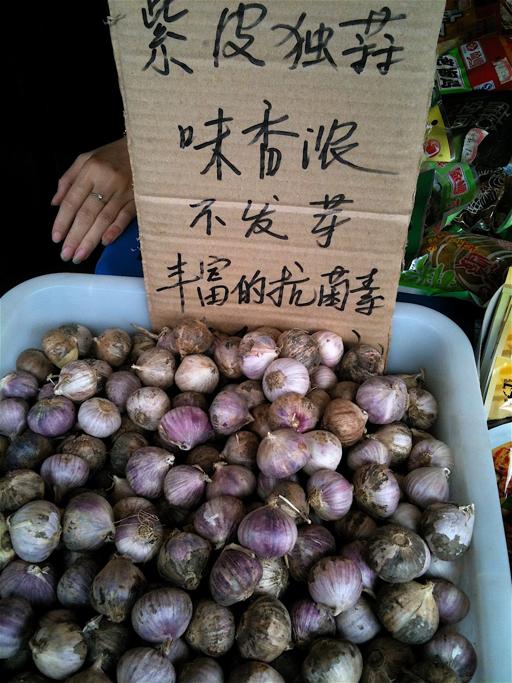 紫皮独蒜
味香浓
不发芽
丰富的抗菌素